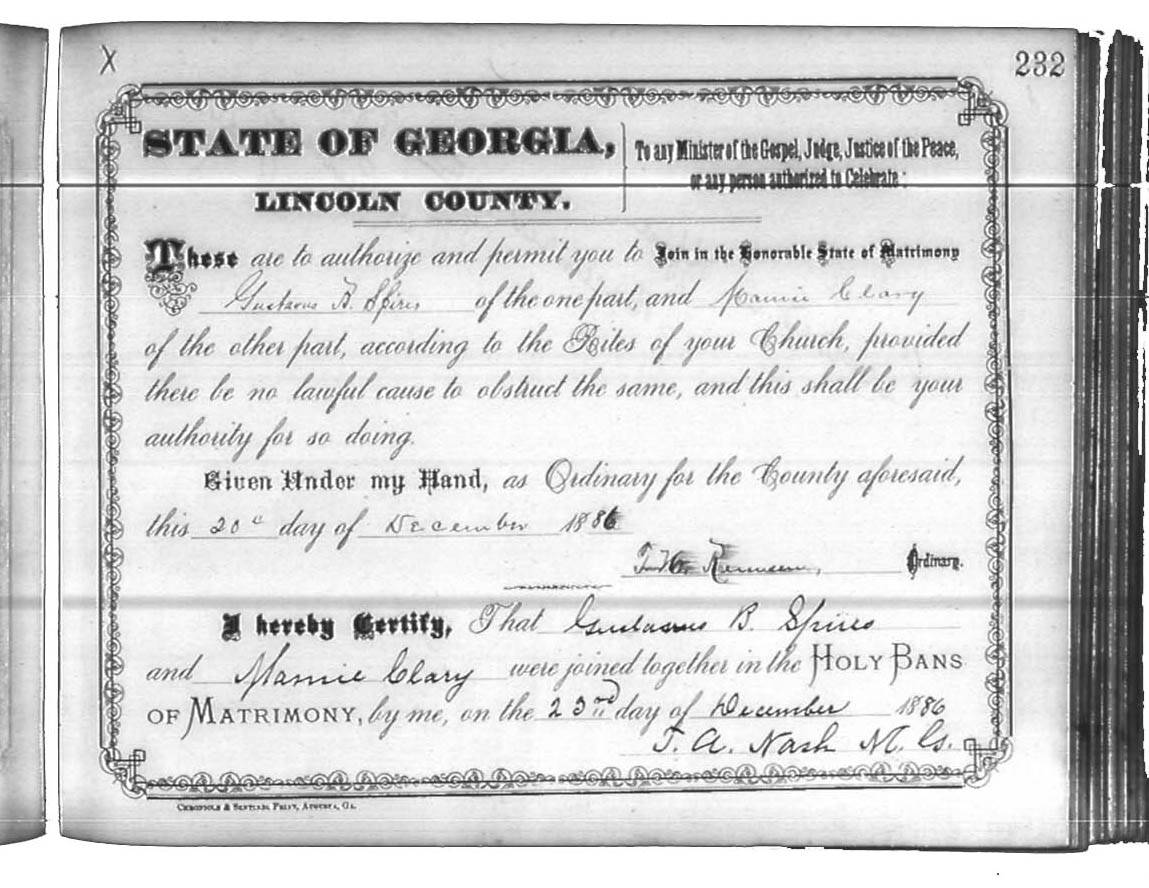 X
232
STATE OF GEORGIA,
LINCOLN COUNTY.
To any Minister of the Gospel, Judge, Justice of the Peace,
or any person authorized to Celebrate:
These are to authorize and permit you to Join in the Honorable State of Matrimony
Gustavus B. Spires of the one part, and Mamie Clary
of the other part, according to the Rites of your Church, provided
there be no lawful cause to obstruct the same, and this shall be your
authority for so doing.
Given Under my Hand, as Ordinary for the County aforesaid,
this 20th day of December 1886
Ordinary.
I hereby Certify, That Gustavus B. Spires
and Mamie Clary were joined together in the HOLY BANS
OF MATRIMONY, by me, on the 23rd day of December 1886
T. A. Nash M. G.
CHRONICLE & SENTINEL PRINT, AUGUSTA, GA.